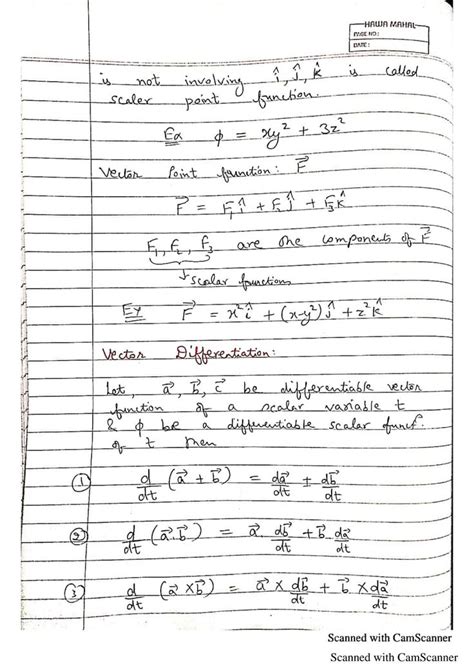 HAWA MAHAL
PAGE NO.:
DATE:
is not involving î, ĵ, k̂ is called
scaler point function.
Ex ϕ = xy² + 3z²
Vector Point function: F⃗
F⃗ = F₁î + F₂ĵ + F₃k̂
F₁, F₂, F₃ are the components of F⃗
↓ scalar functions
Ex F⃗ = x²î + (x-y²)ĵ + z²k̂
Vector Differentiation:
Let, a⃗, b⃗, c⃗ be differentiable vector
function of a scalar variable t
& ϕ be a differentiable scalar funcⁿ.
of t then
① d/dt (a⃗ + b⃗) = da⃗/dt ± db⃗/dt
② d/dt (a⃗.b⃗) = a⃗. db⃗/dt + b⃗. da⃗/dt
③ d/dt (a⃗ × b⃗) = a⃗ × db⃗/dt + b⃗ × da⃗/dt
Scanned with CamScanner
Scanned with CamScanner